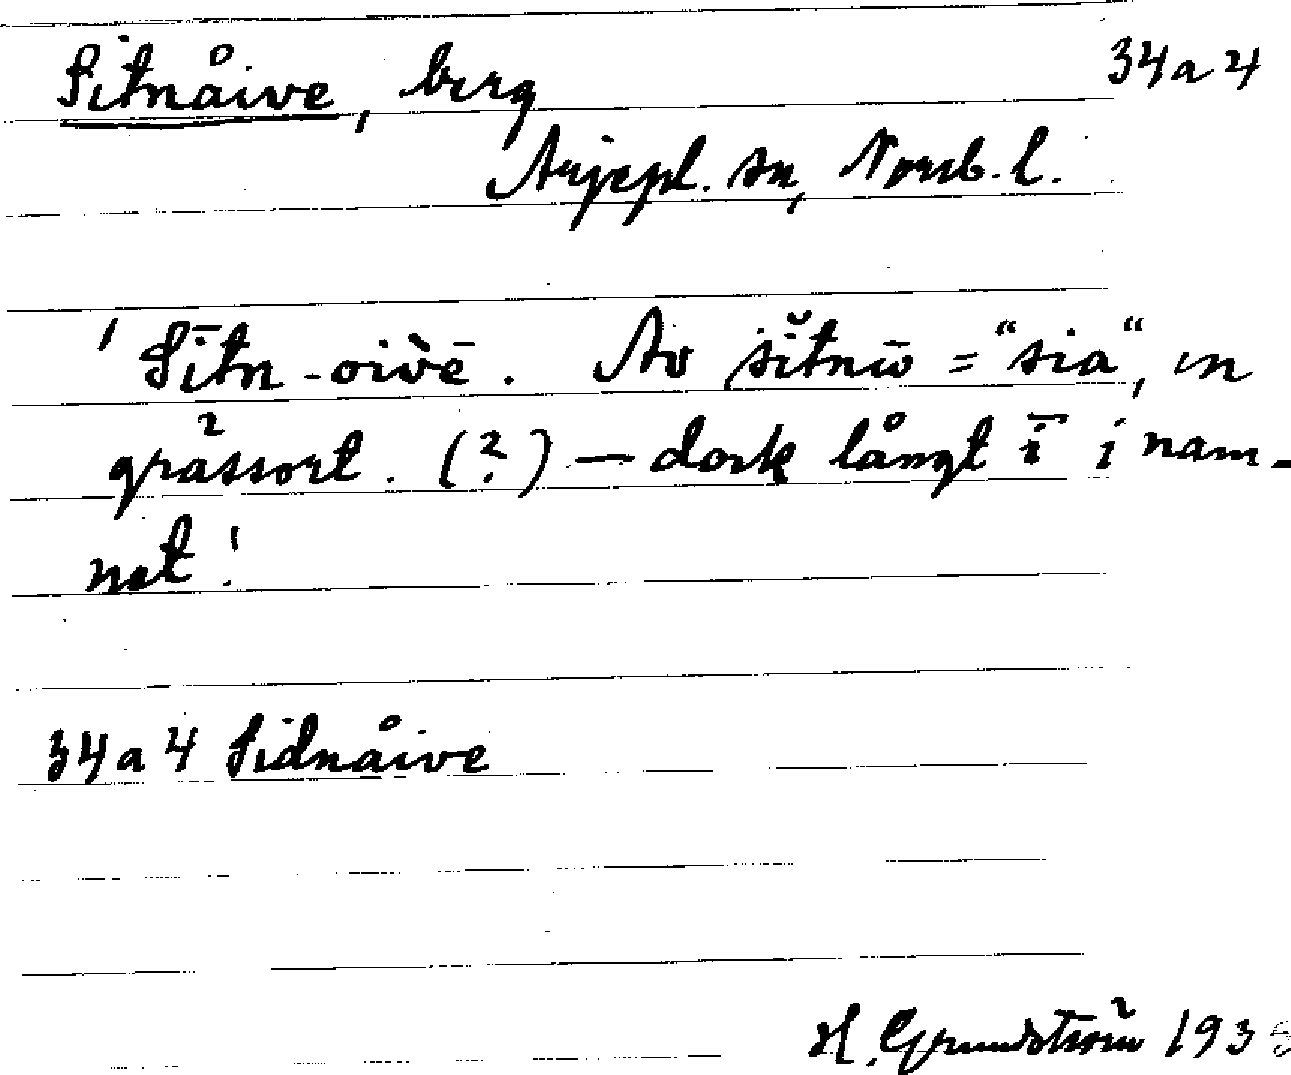 Sitnåive, berg 34a4
Arjepl. sn, Norrb. l.
' Sītn-oi̬vē. Av sĭtnō = "sia", en
grässort. (?) — dock långt ī i nam-
net!
34a4 Sidnåive
H. Grundström 193